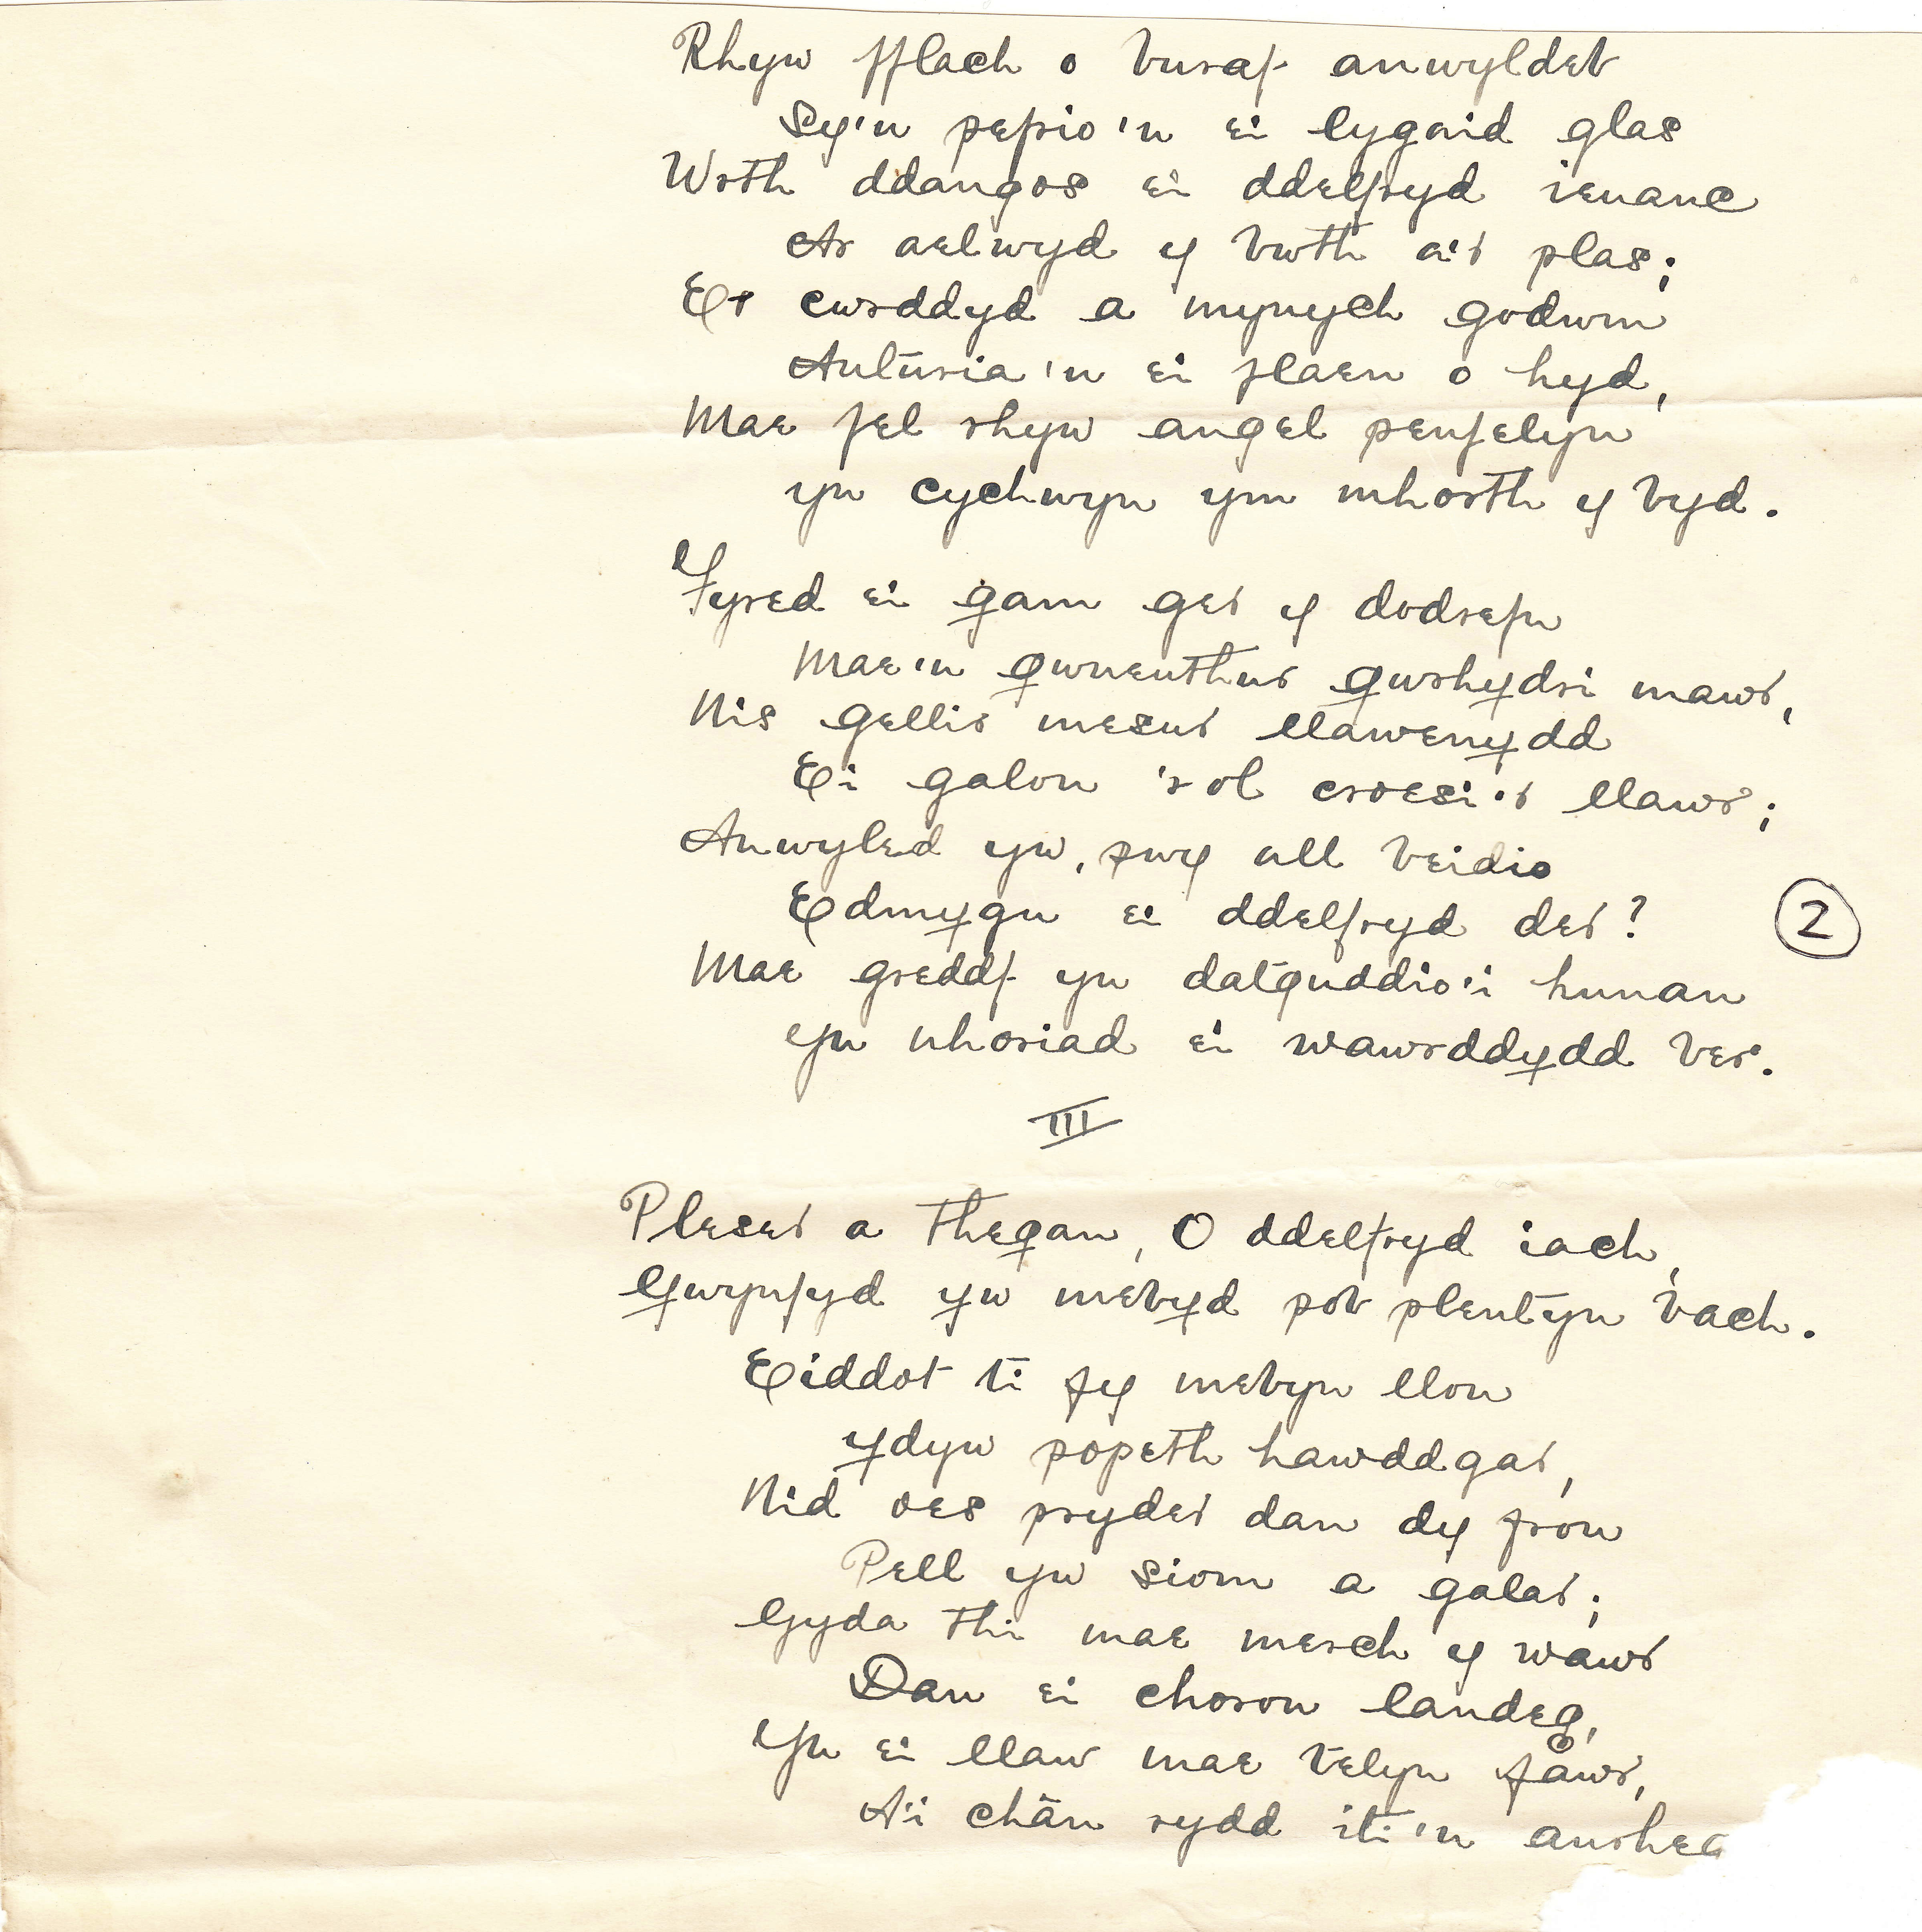 Rhyw fflach o buraf anwyldeb
Sy'n pefrio'n ei lygaid glas
Wrth ddangos ei ddelfryd ieuanc
Ar aelwyd y bwth a'r plas;
Er cwrddyd a mynych godwm
Anturia'n ei flaen o hyd,
Mae fel rhyw angel penfelyn
yn cychwyn ym mhorth y byd.
Fyred ei gam ger y dodrefn
Mae'n gwneuthur gwrhydri mawr,
Nis gellir mesur llawenydd
Ei galon 'rol croesi'r llawr;
Anwyled yw, pwy all beidio
Edmygu ei ddelfryd der?
Mae greddf yn datguddio'i hunan
yn nhoriad ei wawrddydd ber.
2
III
Pleser a thegan, O ddelfryd iach,
Gwynfyd yw mebyd pob plentyn bach.
Eiddot ti fy mebyn llon
ydyw popeth hawddgar,
Nid oes pryder dan dy fron
Pell yw siom a galar;
Gyda thi mae merch y wawr
Dan ei choron landeg,
Yn ei llaw mae telyn fawr,
A'i chân rydd iti'n anrheg